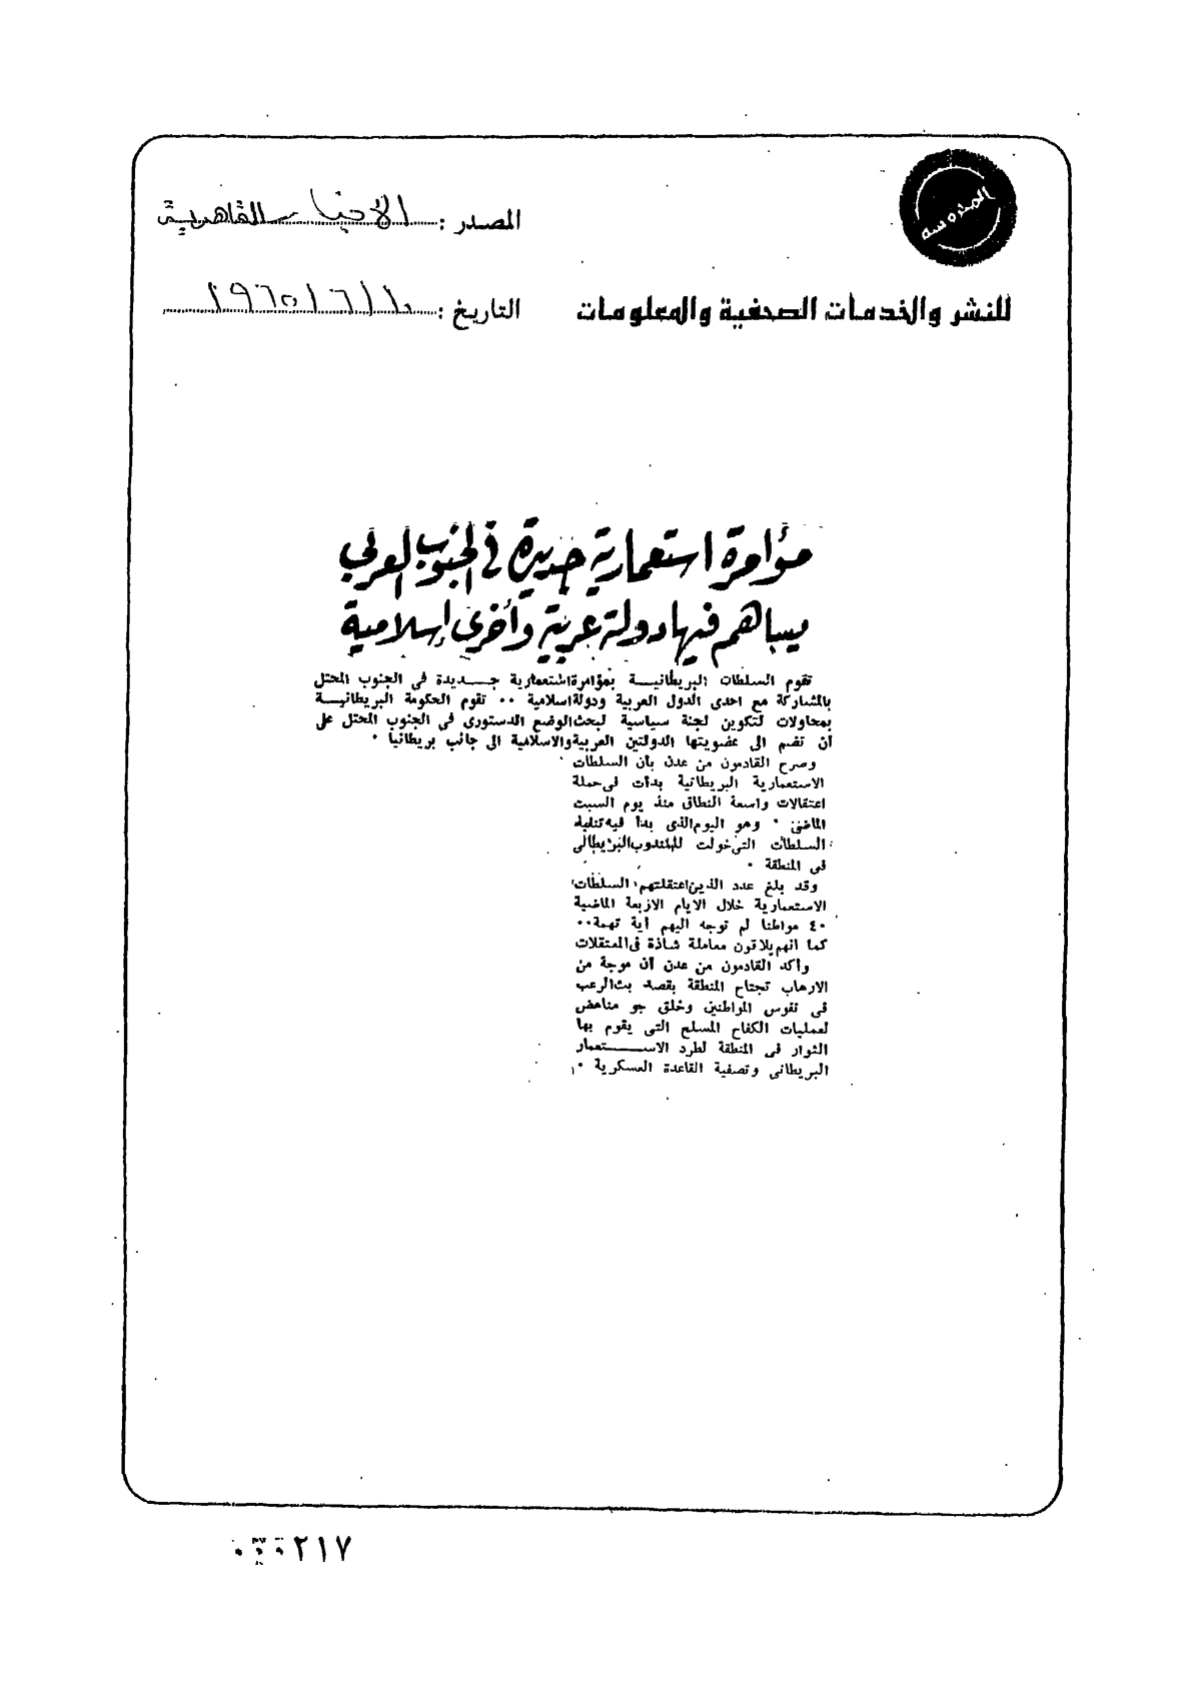 المحروسة
المصدر : الأخبار القاهرية
للنشر والخدمات الصحفية والمعلومات
التاريخ : ١٩٦٥/٦/١٠
مؤامرة استعمارية جديدة في الجنوب العربي
يساهم فيها دولة عربية وأخرى إسلامية
تقوم السلطات البريطانيــة بمؤامرة استعمارية جــديدة فى الجنوب المحتل
بالمشاركة مع احدى الدول العربية ودولة اسلامية ٠٠ تقوم الحكومة البريطانيــة
بمحاولات لتكوين لجنة سياسية لبحث الوضع الدستورى فى الجنوب المحتل على
أن تضم الى عضويتها الدولتين العربية والاسلامية الى جانب بريطانيا ٠
وصرح القادمون من عدن بأن السلطات
الاستعمارية البريطانية بدأت فى حملة
اعتقالات واسعة النطاق منذ يوم السبت
الماضى ٠ وهو اليوم الذى بدأ فيه تنفيذ
السلطات التى خولت للمندوب البريطانى
فى المنطقة ٠
وقد بلغ عدد الذين اعتقلتهم السلطات
الاستعمارية خلال الايام الاربعة الماضية
٤٠ مواطنا لم توجه اليهم أية تهمة ٠٠
كما انهم يلاقون معاملة شاذة فى المعتقلات
وأكد القادمون من عدن أن موجة من
الارهاب تجتاح المنطقة بقصد بث الرعب
فى نفوس المواطنين وخلق جو مناهض
لعمليات الكفاح المسلح التى يقوم بها
الثوار فى المنطقة لطرد الاســـتعمار
البريطانى وتصفية القاعدة العسكرية ٠
٢١٧